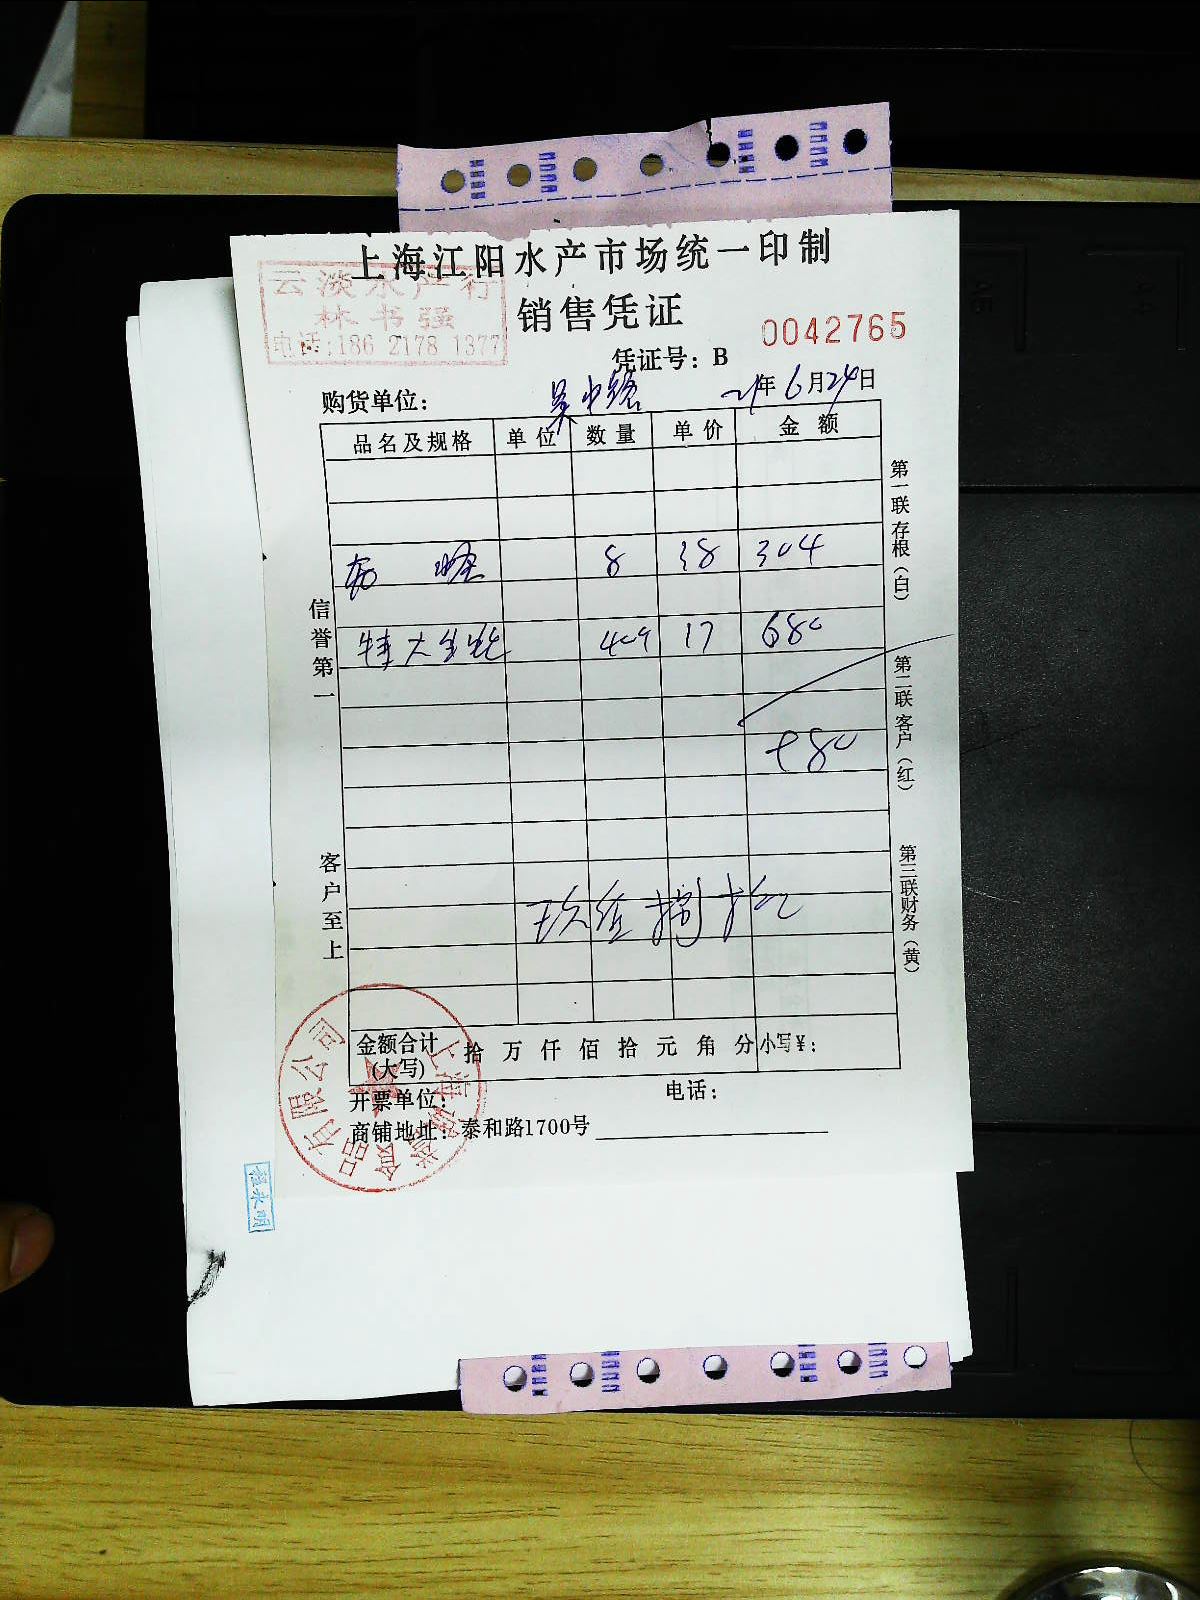 上海江阳水产市场统一印制
云淡水产行
林书强
电话:186 2178 1377
销售凭证
0042765
凭证号: B
购货单位: 吴中路 21年6月24日
品名及规格 单位 数量 单价 金额
8 38 304
特大生蚝 40 17 680
980
玖佰捌拾
金额合计 (大写) 拾 万 仟 佰 拾 元 角 分 小写¥:
开票单位: 电话:
商铺地址: 泰和路1700号
信誉第一
客户至上
第一联存根(白)
第二联客户(红)
第三联财务(黄)
程永明